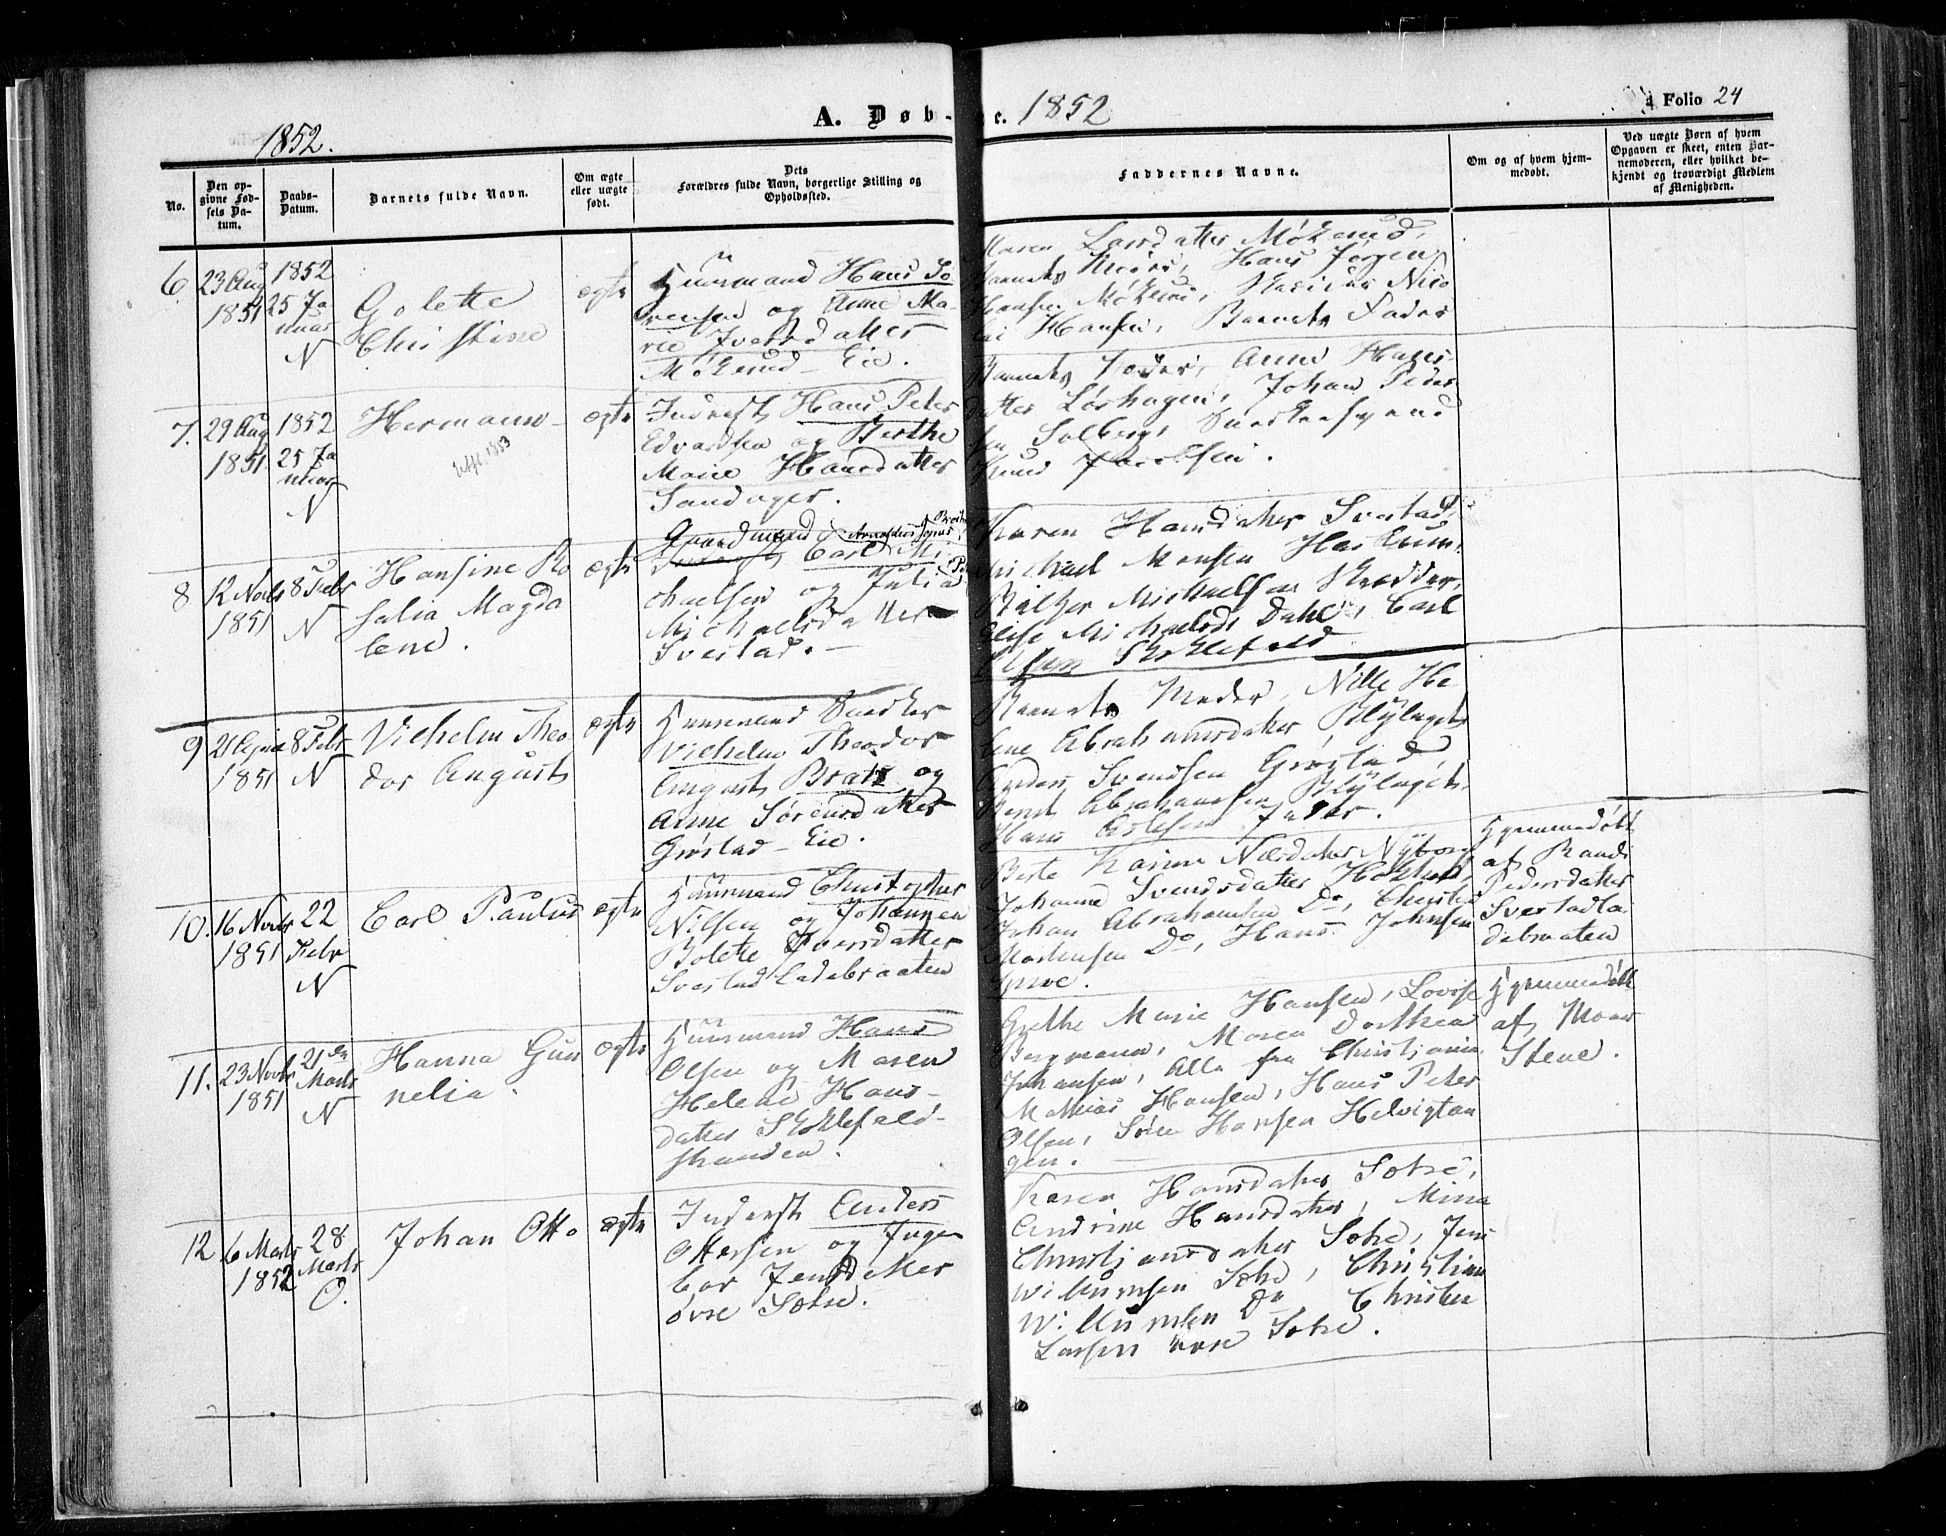 1852.
A. Døb-
e. 1852
Folio 24
No.
Den op-
givne Fød-
sels Da-
tum.
Daabs-
Datum.
Barnets fulde Navn.
Om ægte
eller uægte
født.
Dets
Forældres fulde Navn, borgerlige Stilling og
Opholdssted.
Faddernes Navne.
Om og af hvem hjem-
medøbt.
Ved uægte Børn af hvem
Opgaven er skeet, enten Bar-
nemoderen, eller hvilket be-
kjendt og troværdigt Medlem
af Menigheden.
6
23 Aug
1851
1852
25 Ja
nuar
N
Golette
Christine
ægte
Huusmand Hans Sø
rensen og Anne Ma-
rie Iversdatter
Møkerud Eie.
Maren Larsdatter Møkerud,
Barnets Moder, Hans Jørgen
Hansen Møkerud, Nico
lai Hansen, Barnets Fader
7.
29 Aug
1851
1852
25 Ja
nuar
N
Hermann
ægte
Inderst Hans Peter
Edvardsen og Berthe
Marie Hansdatter
Sandager.
Barnets Moder, Anne Hans
datter Lørhagen, Johan Peder
sen Solberg, Snedkersvend
Knud Jacobsen.
8
12 Novbr
1851
8 Febr
N
Hansine Ro
salia Magda
lene.
ægte
Gaardmand
Carl Mi
chaelsen og Julia
Michaelsdatter
Svestad.
Karen Hansdatter Svestad,
Michael Monsen Haskum,
Baltzer Michaelsen Skrædder,
Elise Michaelsd. Dahl, Carl
Olsen Skoklefald
9
21
1851
8 Febr
N
Vilhelm Theo
dor August
ægte
Huusmand Snedker
Vilhelm Theodor
August Bratz og
Anne Sørensdatter
Grøstad Eie.
Barnets Moder, Nille He
lene Abrahamsdatter Blylaget
Anders Svendsen Grøstad,
Bernt Abrahamsen Blylaget,
Hans Fader.
10.
16 Novbr
1851
22
Febr
N
Carl Paulus
ægte
Huusmand Christopher
Nilsen og Johannea
Bolette Iversdatter
Svestad Ladebraaten
Berte Karine Nilsdatter Nyborg
Johanne Svendsdatter
Johan Abrahamsen Do, Christia
Mortensen Do, Hans Johnsen
Hjemmedøbt
af Randi
Pedersdatter
Svestadla
debraaten
11.
23 Novbr
1851
21 de
Marts
N
Hanna Gun
nelia.
ægte
Huusmand Hans
Olsen og Maren
Helene Hans-
datter Skoklefald-
stranden.
Grethe Marie Hansen, Lovise
Bergmann, Maren Dorthea
Johansen, Alle fra Christiania
Mathias Hansen, Hans Peter
Olsen, Søren Hansen Helvigtan
gen.
Hjemmedøbt
af Moer
Stene.
12
6 Marts
1852
28
Marts
O.
Johan Otto
ægte
Inderst Anders
Ottersen og Inge
bor Jensdatter
øvre Sotre.
Karen Hansdatter Sotre,
Andrine Hansdatter, Mina
Christiansdatter Sotre, Jens
Willumsen Sotre, Christian
Willumsen Do Christen
Larsen øvre Sotre.